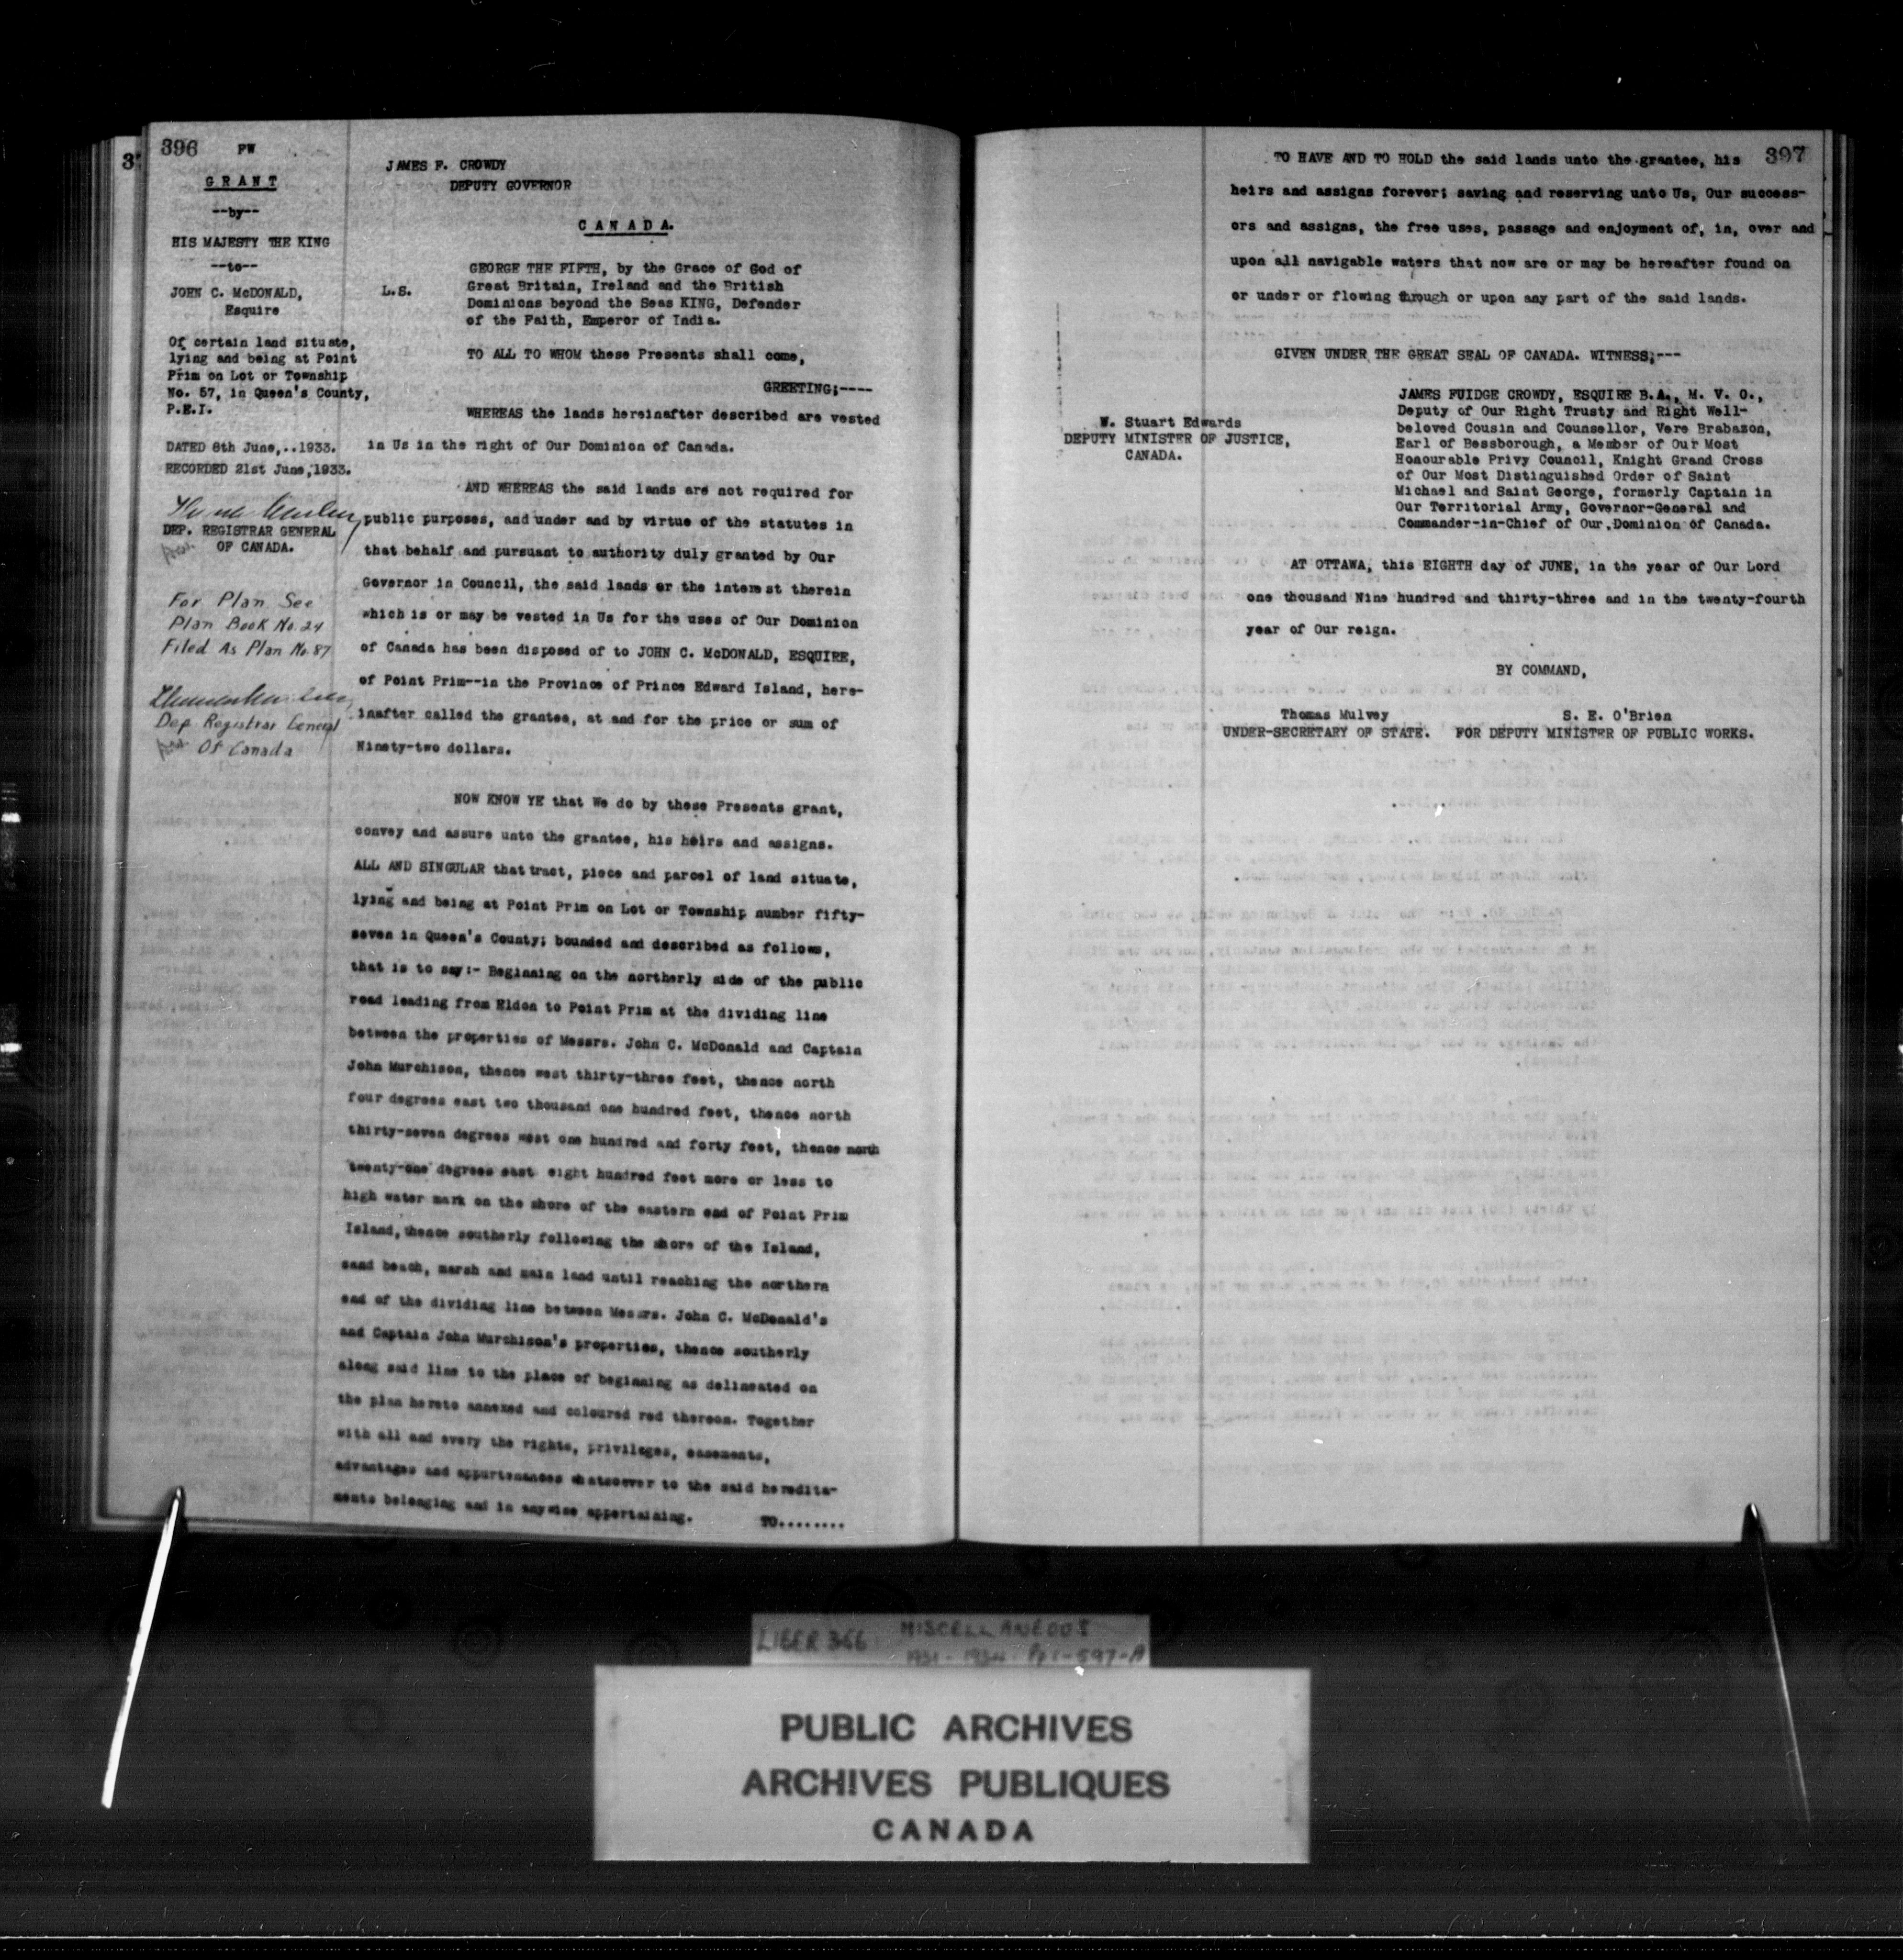 396
FW
GRANT
--by--
HIS MAJESTY THE KING
--to--
JOHN C. McDONALD,
Esquire
Of certain land situate,
lying and being at Point
Prim on Lot or Township
No. 57, in Queen's County,
P.E.I.
DATED 8th June,..1933.
RECORDED 21st June,1933.
DEP. REGISTRAR GENERAL
OF CANADA.
For Plan See
Plan Book No. 24
Filed As Plan No. 87
Dep Registrar General
Of Canada
JAMES F. CROWDY
DEPUTY GOVERNOR
CANADA.
L.S.
GEORGE THE FIFTH, by the Grace of God of
Great Britain, Ireland and the British
Dominions beyond the Seas KING, Defender
of the Faith, Emperor of India.
TO ALL TO WHOM these Presents shall come,
GREETING;----
WHEREAS the lands hereinafter described are vested
in Us in the right of Our Dominion of Canada.
AND WHEREAS the said lands are not required for
public purposes, and under and by virtue of the statutes in
that behalf and pursuant to authority duly granted by Our
Governor in Council, the said lands or the interest therein
which is or may be vested in Us for the uses of Our Dominion
of Canada has been disposed of to JOHN C. McDONALD, ESQUIRE,
of Point Prim--in the Province of Prince Edward Island, here-
inafter called the grantee, at and for the price or sum of
Ninety-two dollars.
NOW KNOW YE that We do by these Presents grant,
convey and assure unto the grantee, his heirs and assigns.
ALL AND SINGULAR that tract, piece and parcel of land situate,
lying and being at Point Prim on Lot or Township number fifty-
seven in Queen's County; bounded and described as follows,
that is to say:- Beginning on the northerly side of the public
road leading from Eldon to Point Prim at the dividing line
between the properties of Messrs. John C. McDonald and Captain
John Murchison, thence west thirty-three feet, thence north
four degrees east two thousand one hundred feet, thence north
thirty-seven degrees west one hundred and forty feet, thence north
twenty-one degrees east eight hundred feet more or less to
high water mark on the shore of the eastern end of Point Prim
Island, thence southerly following the shore of the Island,
sand beach, marsh and main land until reaching the northern
end of the dividing line between Messrs. John C. McDonald's
and Captain John Murchison's properties, thence southerly
along said line to the place of beginning as delineated on
the plan hereto annexed and coloured red thereon. Together
with all and every the rights, privileges, easements,
advantages and appurtenances whatsoever to the said heredita-
ments belonging and in anywise appertaining. TO........
397
TO HAVE AND TO HOLD the said lands unto the grantee, his
heirs and assigns forever; saving and reserving unto Us, Our success-
ors and assigns, the free uses, passage and enjoyment of, in, over and
upon all navigable waters that now are or may be hereafter found on
or under or flowing through or upon any part of the said lands.
GIVEN UNDER THE GREAT SEAL OF CANADA. WITNESS;---
W. Stuart Edwards
DEPUTY MINISTER OF JUSTICE,
CANADA.
JAMES FUIDGE CROWDY, ESQUIRE B.A., M. V. O.,
Deputy of Our Right Trusty and Right Well-
beloved Cousin and Counsellor, Vere Brabazon,
Earl of Bessborough, a Member of Our Most
Honourable Privy Council, Knight Grand Cross
of Our Most Distinguished Order of Saint
Michael and Saint George, formerly Captain in
Our Territorial Army, Governor-General and
Commander-in-Chief of Our Dominion of Canada.
AT OTTAWA, this EIGHTH day of JUNE, in the year of Our Lord
one thousand Nine hundred and thirty-three and in the twenty-fourth
year of Our reign.
BY COMMAND,
Thomas Mulvey
UNDER-SECRETARY OF STATE.
S. E. O'Brien
FOR DEPUTY MINISTER OF PUBLIC WORKS.
LIBER 366 MISCELLANEOUS
1931-1934 Pp 1-597-A
PUBLIC ARCHIVES
ARCHIVES PUBLIQUES
CANADA